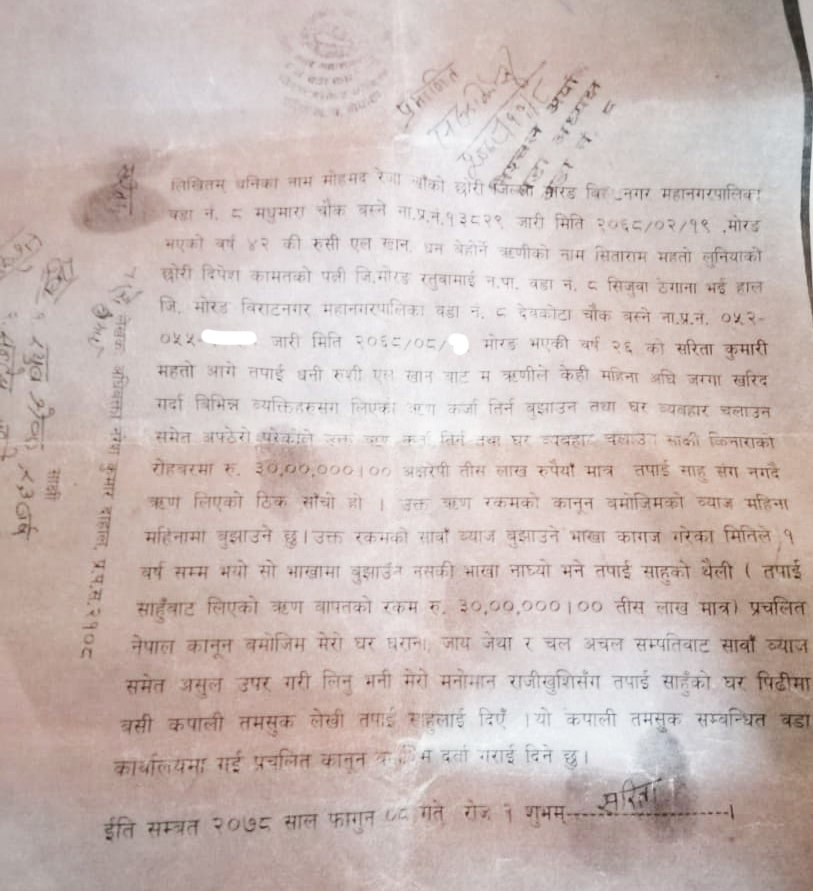 प्रमाणित
लिखितम् धनिका नाम मोहमद रेजा खाँको छोरी जिल्ला मोरङ महानगरपालिका
वडा नं. ८ मधुमारा चौक बस्ने ना.प्र.नं.१३८२९ जारी मिति २०६८/०२/१९ ,मोरङ
भएको वर्ष ४२ की रुसी एल खान, धन बेहोर्ने ऋणीको नाम सिताराम महतो लुनियाको
छोरी दिपेश कामतको पत्नी जि.मोरङ रतुवामाई न.पा. वडा नं. ८ सिजुवा ठेगाना भई हाल
जि. मोरङ विराटनगर महानगरपालिका वडा नं. ८ देवकोटा चौक बस्ने ना.प्र.नं. ०५२-
०५५- जारी मिति २०६८/०८/ मोरङ भएकी वर्ष २६ को सरिता कुमारी
महतो आगे तपाई धनी रुशी एल खान बाट म ऋणीले केही महिना अघि जग्गा खरिद
गर्दा बिभिन्न व्यक्तिहरुसंग लिएको ऋण कर्जा तिर्न बुझाउन तथा घर व्यवहार चलाउन
समेत अफ्ठेरो परेकोले उक्त ऋण कर्जा तिर्न तथा घर व्यवहार चलाउन साक्षी किनाराको
रोहबरमा रु. ३०,००,०००।०० अक्षरेपी तीस लाख रुपैयाँ मात्र तपाई साहु संग नगदै
ऋण लिएको ठिक साँचो हो । उक्त ऋण रकमको कानून बमोजिमको व्याज महिना
महिनामा बुझाउने छु। उक्त रकमको सावाँ व्याज बुझाउने भाखा कागज गरेका मितिले १
वर्ष सम्म भयो सो भाखामा बुझाउँन नसकी भाखा नाघ्यो भने तपाई साहुको थैली ( तपाई
साहुँबाट लिएको ऋण बापतको रकम रु. ३०,००,०००।०० तीस लाख मात्र) प्रचलित
नेपाल कानून बमोजिम मेरो घर घराना, जाय जेथा र चल अचल सम्पतिबाट सावाँ व्याज
समेत असुल उपर गरी लिनु भनी मेरो मनोमान राजीखुशिसँग तपाई साहुँको घर पिढीमा
बसी कपाली तमसुक लेखी तपाई साहुलाई दिएँ ।यो कपाली तमसुक सम्बन्धित वडा
कार्यालयमा गई प्रचलित कानून दर्ता गराई दिने छु।
ईति सम्बत २०७८ साल फागुन ०८ गते रोज १ शुभम्
सरिता
साक्षी
लेखक अधिवक्ता नरेश कुमार दाहाल, प्र.प.स.२१०८